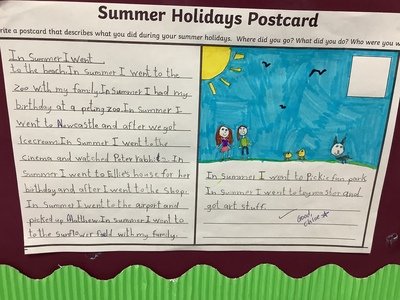 Summer Holidays Postcard
rite a postcard that describes what you did during your summer holidays. Where did you go? What did you do? Who were you w
In Summer I went
to the beach In summer I went to the
zoo with my family In Summer I had my
birthday at a peting zoo. In Summer I
went to Newcastle and after we got
Icecream. In Summer I went to the
cinema and watched Peter rabbit 2. In
Summer I went to Ellie's house for her
birthday and after I went to the Shop.
In Summer I went to the airport and
picked up Matthew. In summer I want to
to the Sunflower with my family.
In Summer I went to Pickie fun park
In Summer I went to toymaster and
got art stuff.
Good,
Chloe